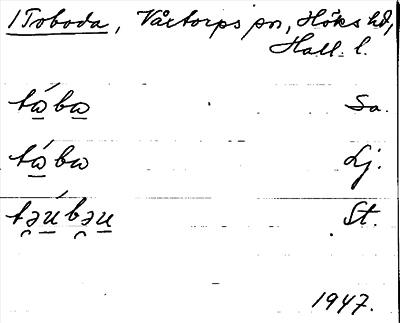 1 Toboda, Vårtorps sn, Höks hd,
Hall. l.
tábɑ Sa.
tábɑ Lj.
tə̯úbə̯u St.
1947.